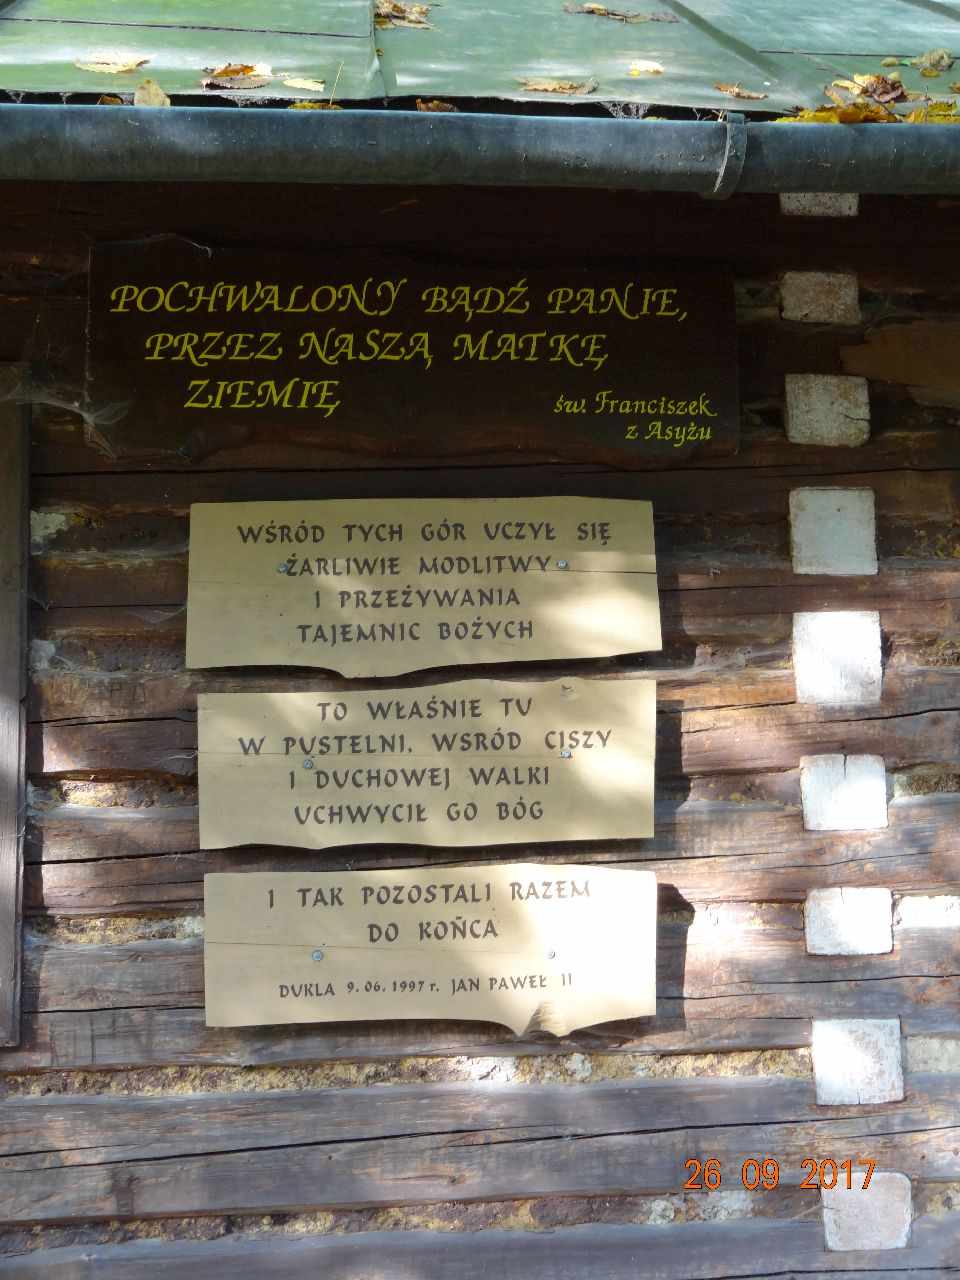 POCHWALONY BĄDŹ PANIE,
PRZEZ NASZĄ MATKĘ
ZIEMIĘ
św. Franciszek
z Asyżu
WŚRÓD TYCH GÓR UCZYŁ SIĘ
ŻARLIWIE MODLITWY
I PRZEŻYWANIA
TAJEMNIC BOŻYCH
TO WŁAŚNIE TU
W PUSTELNI, WŚRÓD CISZY
I DUCHOWEJ WALKI
UCHWYCIŁ GO BÓG
I TAK POZOSTALI RAZEM
DO KOŃCA
DUKLA 9.06.1997 r. JAN PAWEŁ II
26 09 2017